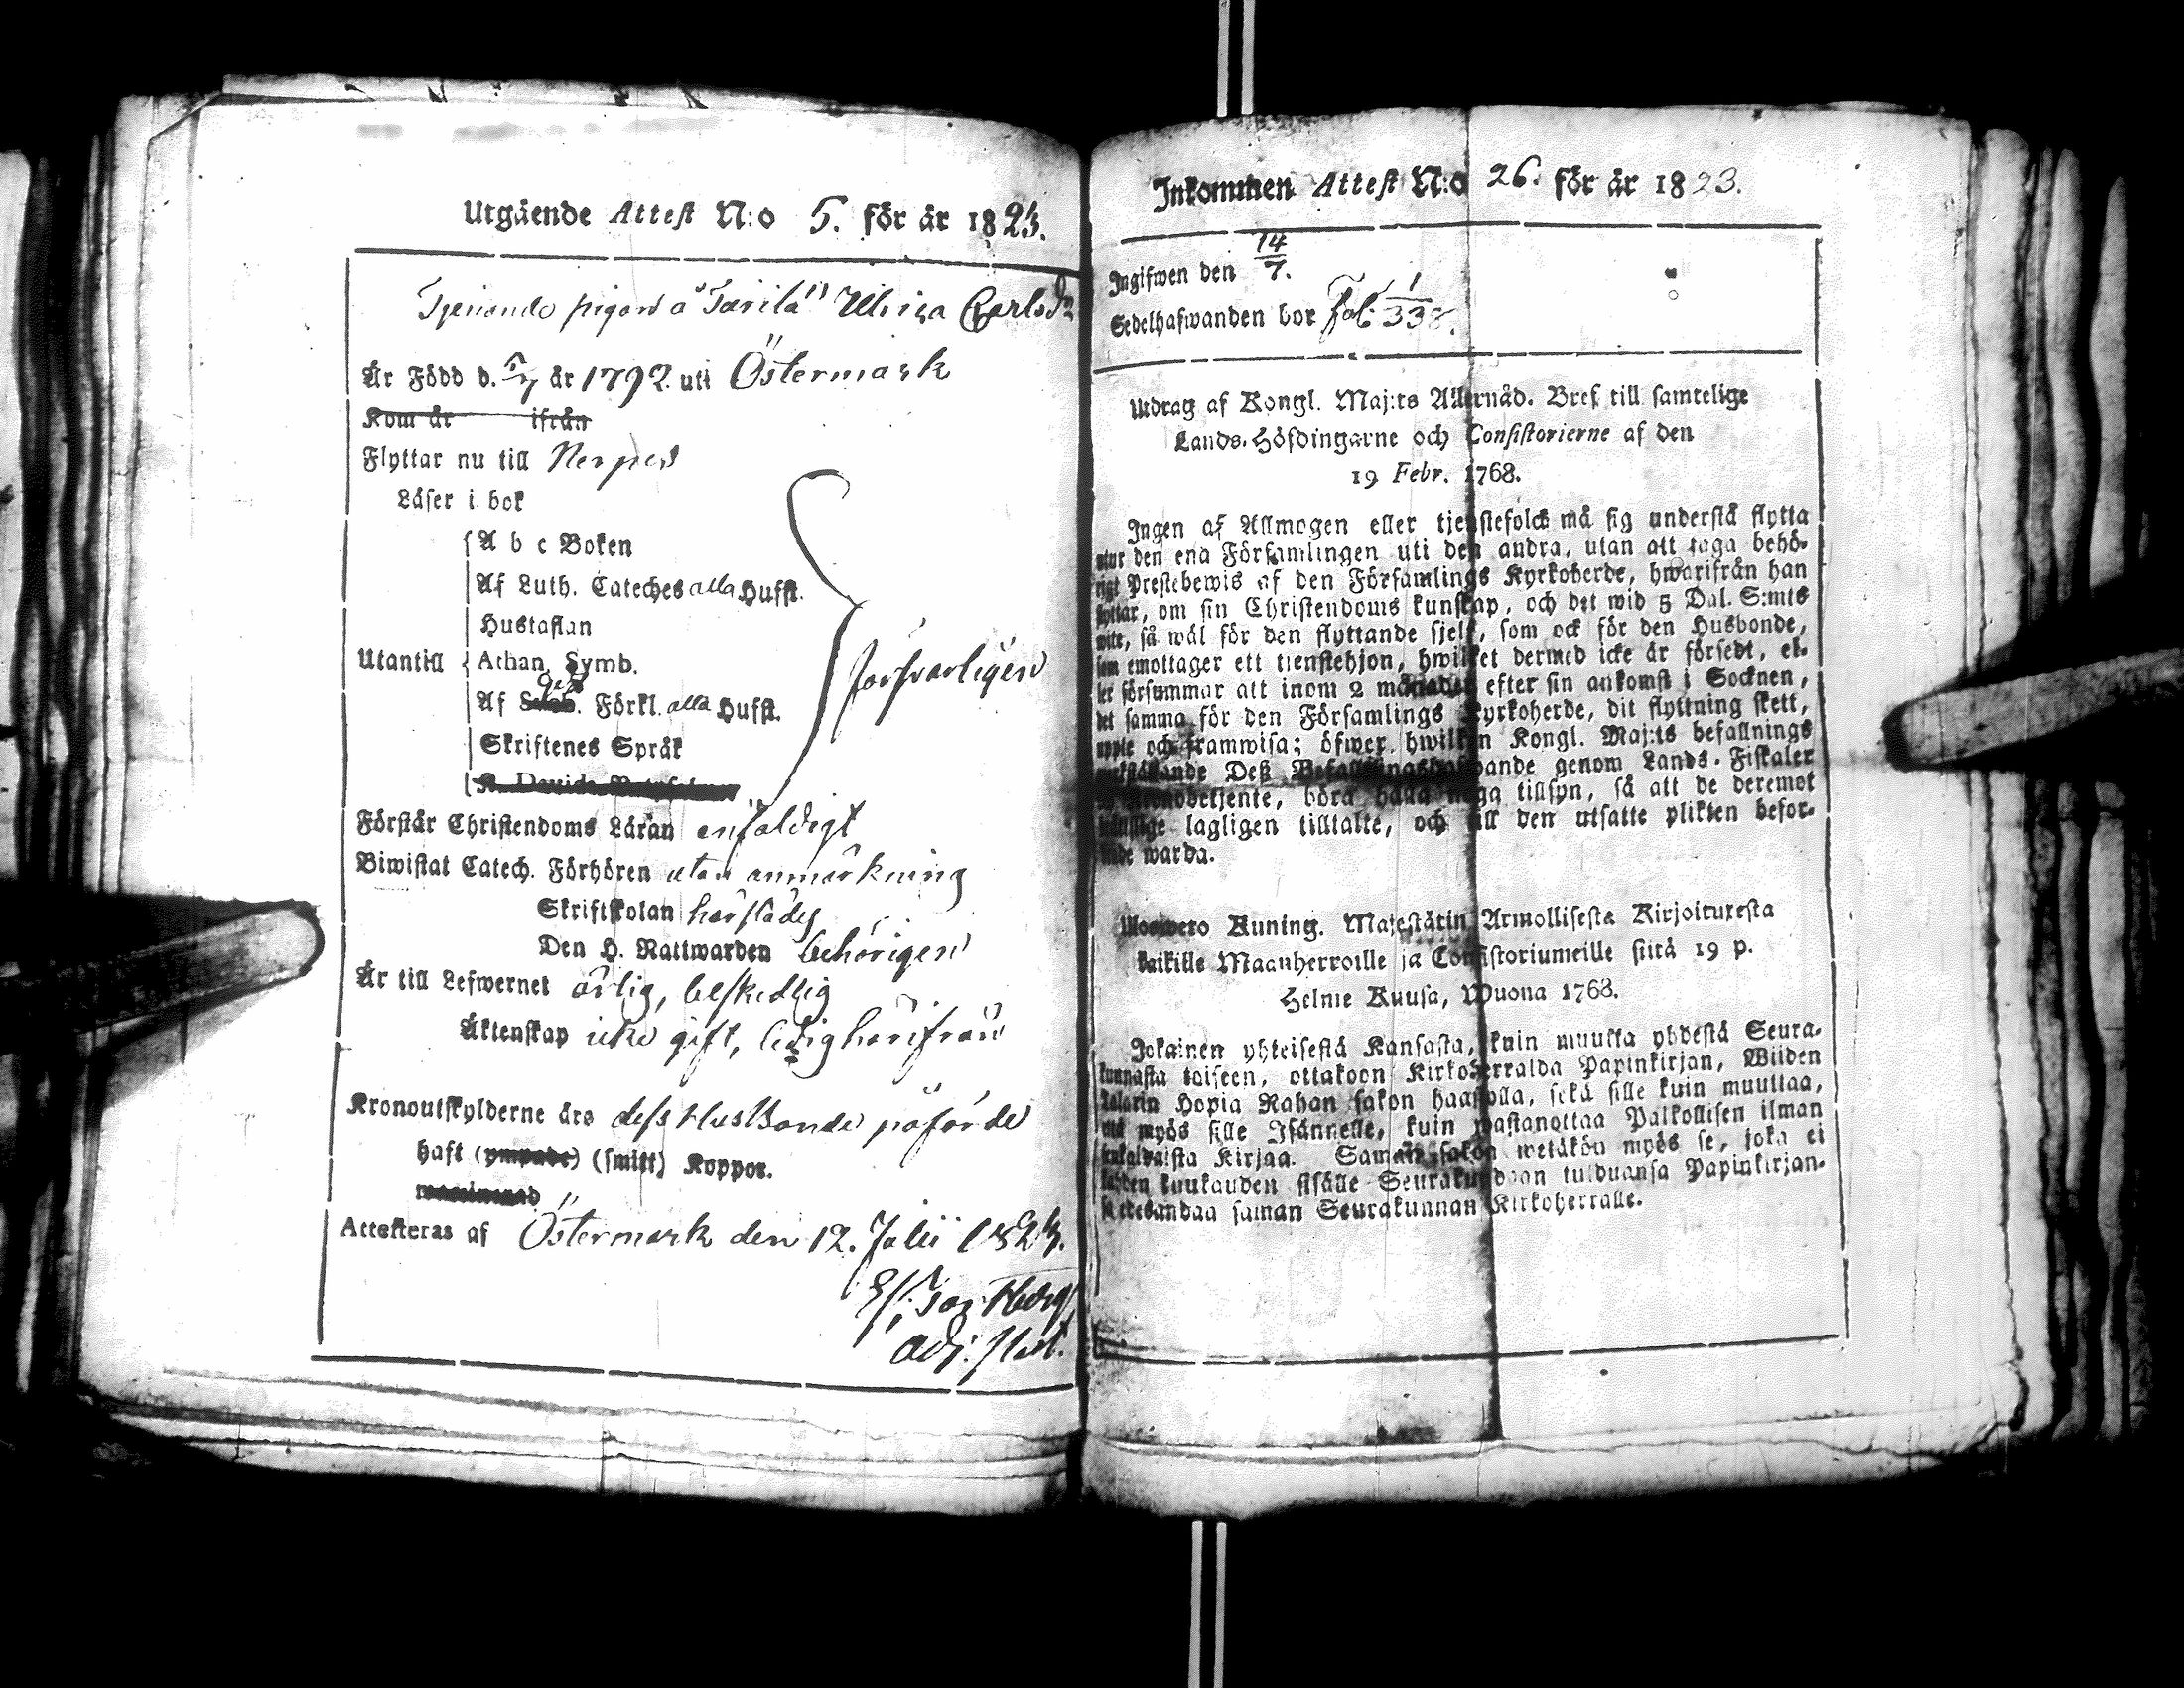 Utgående Attest N:o 5. för år 1823.
Tjenande pigan å Tarila Ulrica Carlsdr
Är Född d. 5/7 år 1792 uti Östermark
Kom år ifrån
Flyttar nu till Nerpes
Läser i bok
A b c Boken
Af Luth. Cateches alla Hufst.
Hustaflan
Utantill Athan. Symb.
Af Förkl. alla Hufst.
Skriftenes Språk
K. Davids
försvarligen
Förstår Christendoms Läran enfaldigt
Biwistat Catech. Förhören utan anmärkning
Skriftskolan härstädes
Den H. Nattwarden behörigen
Är till Lefwernet ärlig, beskedlig
Äktenskap icke gift, ledig härifrån
Kronoutskylderne äro dess Husbonde påförde
haft (ympade) (smitt) Koppor.
vaccinerad
Attesteras af Östermark den 12. Julii 1823.
adj.
Inkommen Attest N:o 26. för år 1823.
Ingifwen den 14/7.
Sedelhafwanden bor Fol. 338.
Utdrag af Kongl. Maj:ts Allernåd. Bref till samtelige
Lands-Höfdingarne och Consistorierne af den
19 Febr. 1768.
Ingen af Allmogen eller tjenstefolck må sig understå flytta
utur den ena Församlingen uti den andra, utan att taga behö-
rigt Prestebewis af den Församlings Kyrkoherde, hwarifrån han
flyttar, om sin Christendoms kunskap, och det wid 5 Dal. S:mts
wite, så wäl för den flyttande sjelf, som ock för den Husbonde,
som emottager ett tjenstehjon, hwilket dermed icke är försedt, el-
ler försummar att inom 2 månader efter sin ankomst i Socknen,
det samma för den Församlings Kyrkoherde, dit flyttning skett,
uppte och framwisa; öfwer hwilken Kongl. Maj:ts befallnings
werkställande Deß Befallningshafwande genom Lands-Fiskaler
Kronobetjente, böra hålla noga tillsyn, så att de deremot
lagligen tilltalte, och till den utsatte plikten befor-
warda.
Uloswero Kuning. Majestätin Armollisesta Kirjoituxesta
kaikille Maanherroille ja Consistoriumeille siitä 19 p.
Helme Kuusa, Wuona 1768.
Jokainen yhteisestä Kansasta, kuin muutta yhdestä Seura-
kunnasta toiseen, ottakoon Kirkoherralda Papinkirjan, Wiiden
Talarin Hopia Rahan sakon haastolla, sekä sille kuin muuttaa,
niin myös sille Isännelle, kuin wastanottaa Palkollisen ilman
Kirjaa. Saman sakon wetäkön myös se, joka ei
kahden kuukauden sisälle Seurakundaan tulduansa Papinkirjan-
sa edesandaa saman Seurakunnan Kirkoherralle.